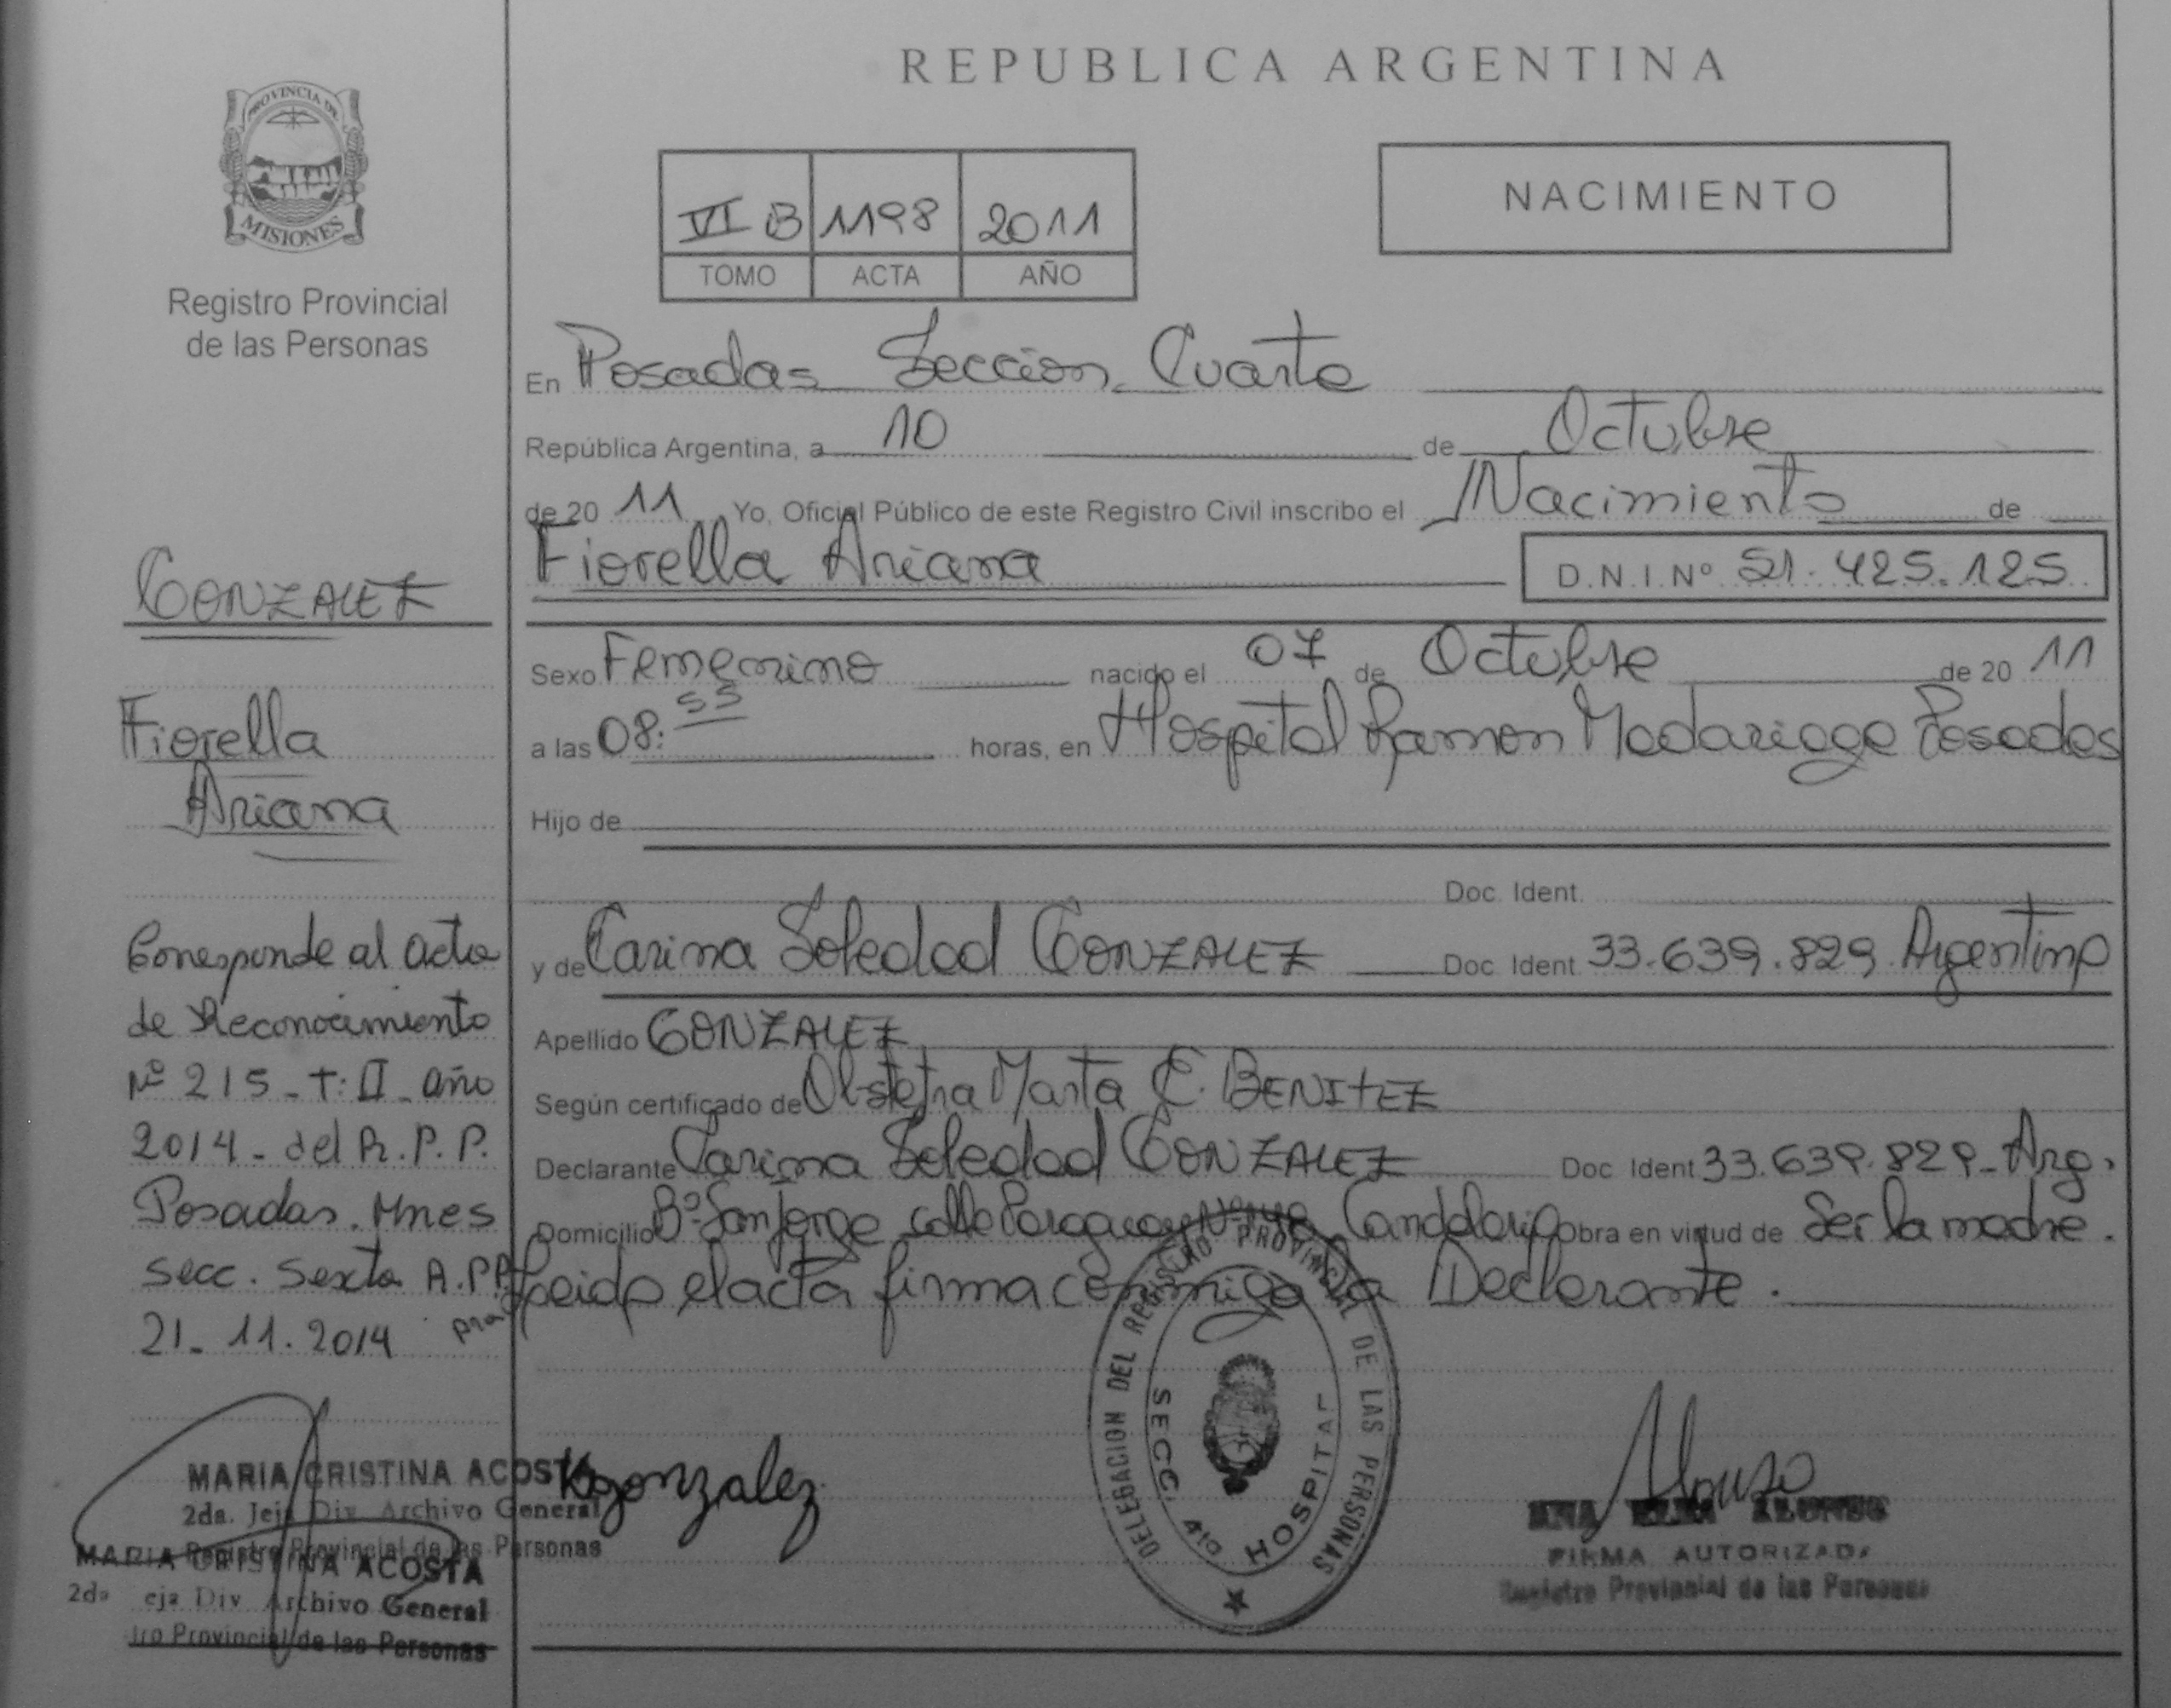 REPUBLICA ARGENTINA
PROVINCIA DE
MISIONES
Registro Provincial
de las Personas
VI B 1198 2011
TOMO ACTA AÑO
NACIMIENTO
En Posadas Seccion Cuarta
República Argentina, a 10 de Octubre
de 20 11 Yo, Oficial Público de este Registro Civil inscribo el Nacimiento de
Fiorella Ariana D.N.I.Nº 51.425.125
Sexo Femenino nacido el 07 de Octubre de 20 11
a las 08:55 horas, en Hospital Ramon Madariaga Posadas
Hijo de
Doc. Ident.
y de Carina Soledad GONZALEZ Doc. Ident. 33.639.829 Argentina
Apellido GONZALEZ
Según certificado de Obstetra Marta E. BENITEZ
Declarante Carina Soledad GONZALEZ Doc. Ident 33.639.829 Arg.
Domicilio Bº San Jorge calle Paraguay Candelaria Obra en virtud de Ser la madre.
Leida el acta firma conmigo la Declarante.
GONZALEZ
Fiorella
Ariana
Corresponde al acta
de Reconocimiento
Nº 215 - T: II - año
2014 - del R.P.P.
Posadas. Mnes
secc. Sexta A.PP
21-11.2014
MARIA CRISTINA ACOSTA
2da. Jefa Div. Archivo General
Registro Provincial de las Personas
MARIA CRISTINA ACOSTA
2da eja Div Archivo General
tro Provincial de las Personas
Kgonzalez
DELEGACION DEL REGISTRO PROVINCIAL DE LAS PERSONAS
SECC. 4ta HOSPITAL
Alonso
ANA ELSA ALONSO
FIRMA AUTORIZADA
Registro Provincial de las Personas